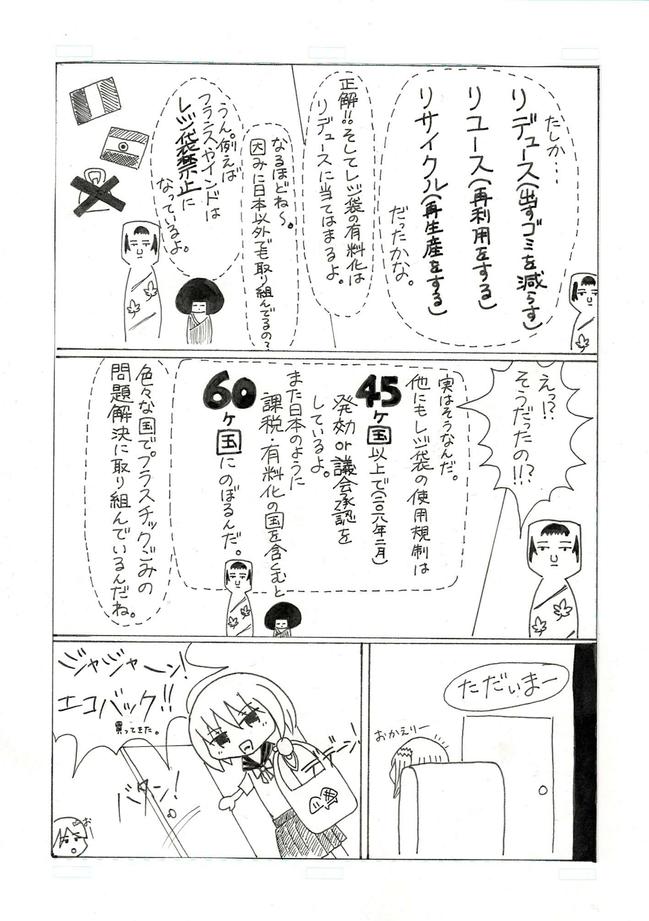 たしか…
リデュース(出すゴミを減らす)
リユース(再利用をする)
リサイクル(再生産をする)
だったかな。
正解!!そしてレジ袋の有料化は
リデュースに当てはまるよ。
なるほどね〜。
因みに日本以外でも取り組んでるの?
うん。例えば
フランスやインドは
レジ袋禁止に
なっているよ。
えっ!?
そうだったの!!?
実はそうなんだ。
他にもレジ袋の使用規制は
45ヶ国以上で(二〇一八年二月)
発効or議会承認を
しているよ。
また日本のように
課税・有料化の国を含むと
60ヶ国にのぼるんだ。
色々な国でプラスチックごみの
問題解決に取り組んでいるんだね。
ただいまー
おかえりー
ジャジャーン!
エコバック!!
買ってきた。
デデーン!
バタン!
お〜